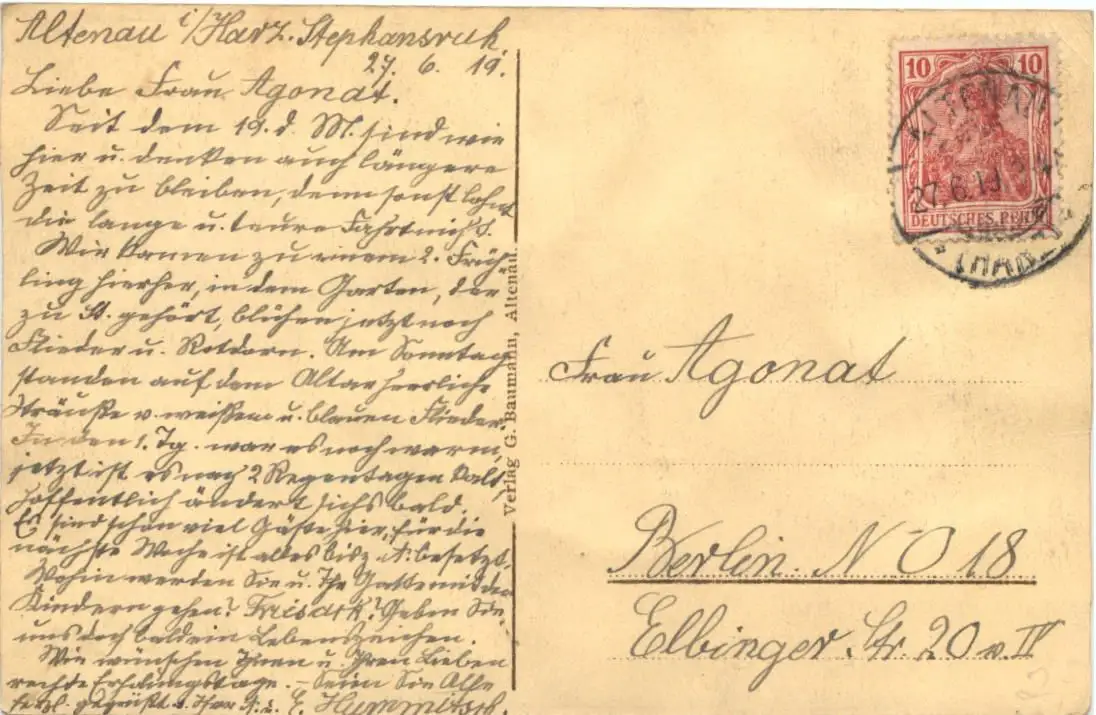 Altenau i/Harz. Stephansruh.
27. 6. 19.
Liebe Frau Agonat.
Seit dem 19. d. M. sind wir
hier u. denken auch längere
Zeit zu bleiben, denn sonst lohnt
die lange u. teure Fahrt nicht.
Wir kamen zu einem 2. Früh
ling hierher, in dem Garten, der
zu St. gehört, blühen jetzt noch
Flieder u. Rotdorn. Am Sonntag
standen auf dem Altar herrliche
Sträuße v. weißem u. blauen Flieder.
In den 1. Tg. war es noch warm,
jetzt ist es nach 2 Regentagen kalt,
hoffentlich ändert sichs bald.
Es sind schon viel Gäste hier, für die
nächste Woche ist alles bis z. besetzt.
Wohin werden Sie u. Ihr Gatte mit den
Kindern gehen? Geben Sie
uns doch bald ein Lebenszeichen.
Wir wünschen Ihnen u. Ihren Lieben
rechte Erholungstage. – Seien Sie Alle
herzl. gegrüßt v. Ihrer u. E.
Verlag G. Baumann, Altenau
10 10
DEUTSCHES REICH
ALTENAU
27.6.19
(HARZ)
Frau Agonat
Berlin. N-O 18
Elbinger. Str. 20 v. IV